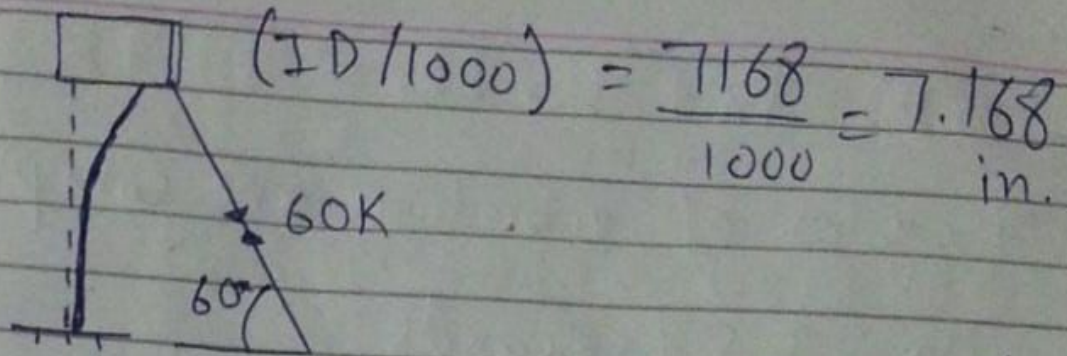 (ID/1000) = 7168/1000 = 7.168 in.
60K
60°